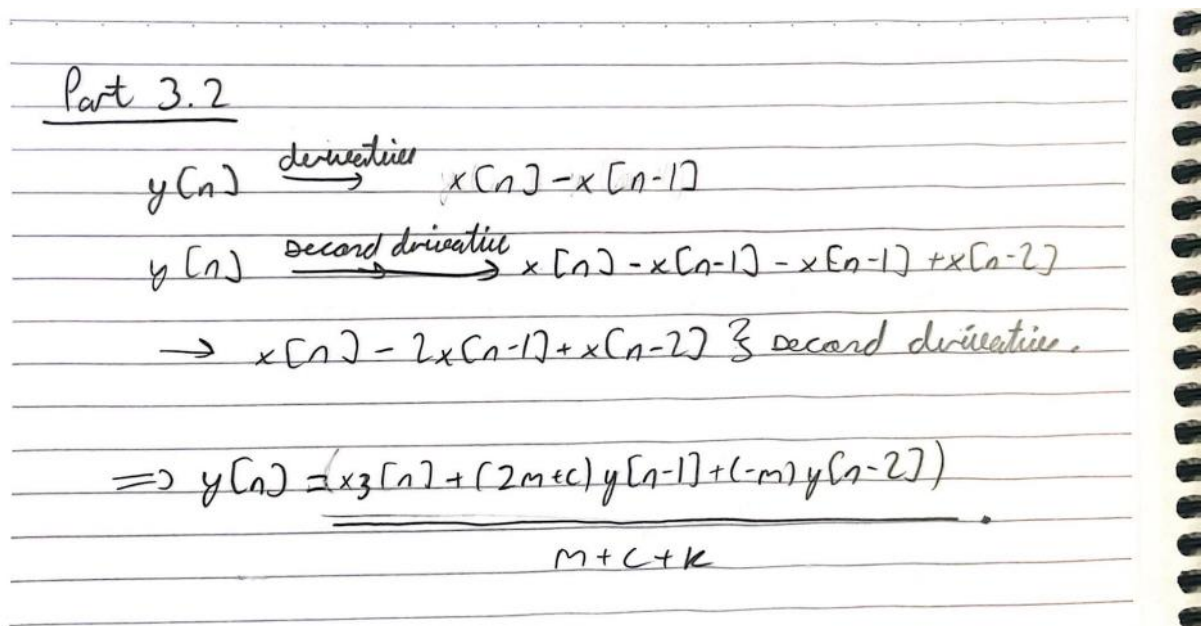 Part 3.2
y[n] derivative → x[n] - x[n-1]
y[n] second derivative → x[n] - x[n-1] - x[n-1] + x[n-2]
→ x[n] - 2x[n-1] + x[n-2] } second derivative.
=> y[n] = (x3[n] + (2m+c) y[n-1] + (-m) y[n-2])
m + c + k